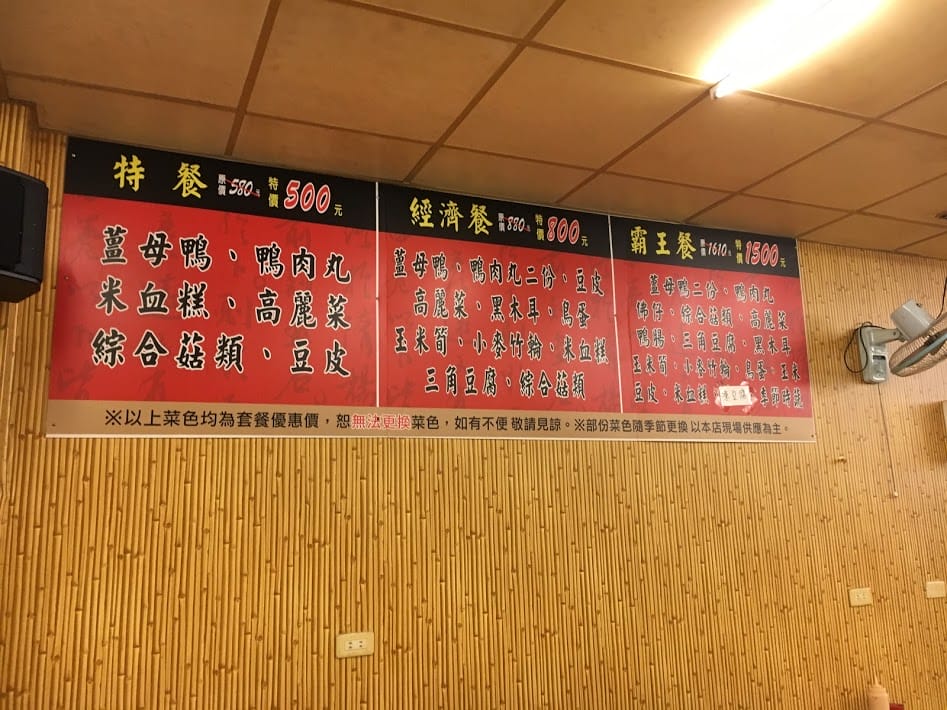 特餐 原價580元 特價500元
薑母鴨、鴨肉丸
米血糕、高麗菜
綜合菇類、豆皮
經濟餐 原價880元 特價800元
薑母鴨、鴨肉丸二份、豆皮
高麗菜、黑木耳、鳥蛋
玉米筍、小麥竹輪、米血糕
三角豆腐、綜合菇類
霸王餐 原價1610元 特價1500元
薑母鴨二份、鴨肉丸
佛仔、綜合菇類、高麗菜
鴨腸、三角豆腐、黑木耳
玉米筍、小麥竹輪、鳥蛋、玉米
豆皮、米血糕 季節時蔬
※以上菜色均為套餐優惠價，恕無法更換菜色，如有不便 敬請見諒。※部份菜色隨季節更換 以本店現場供應為主。